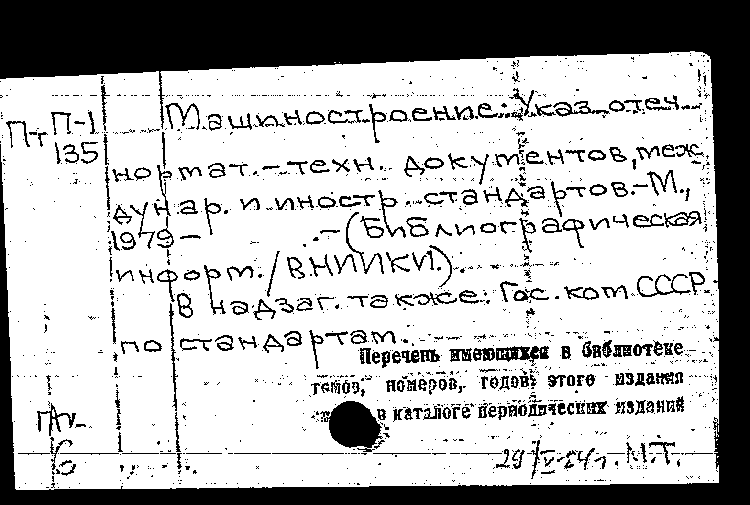 Пт П-1 Машиностроение: Указ. отеч.
135 нормат.-техн. документов, меж-
дунар. и иностр. стандартов.-М.,
1979- .-(Библиографическая
информ./ВНИИКИ.).
В надзаг. также: Гос. ком. СССР
по стандартам.
Перечень имеющихся в библиотеке
томов, номеров, годов этого издания
в каталоге периодических изданий
6
29/V-84г. М.Т.